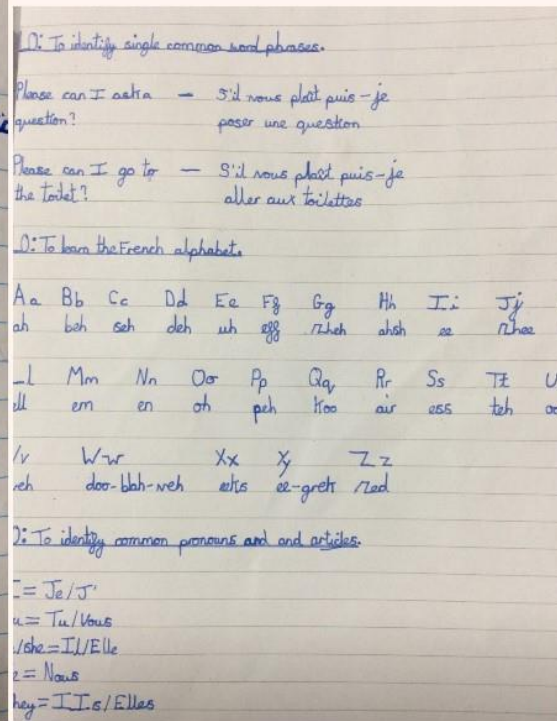 LO: To identify single common word phrases.
Please can I ask a — S'il vous plaît puis-je
question? poser une question
Please can I go to — S'il vous plaît puis-je
the toilet? aller aux toilettes
LO: To learn the French alphabet.
Aa Bb Cc Dd Ee Ff Gg Hh Ii Jj
ah beh seh deh uh eff zheh ahsh ee zhee
l Mm Nn Oo Pp Qq Rr Ss Tt U
ll em en oh peh koo air ess teh oo
v Ww Xx Yy Zz
veh doo-blah-veh eeks ee-grek zed
O: To identify common pronouns and and articles.
I = Je/J'
u = Tu/Vous
/she = Il/Elle
e = Nous
hey = IIs/Elles